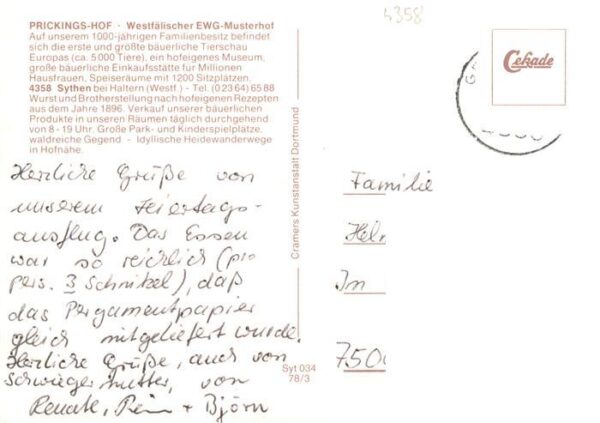 4358
PRICKINGS-HOF · Westfälischer EWG-Musterhof
Auf unserem 1000-jährigen Familienbesitz befindet
sich die erste und größte bäuerliche Tierschau
Europas (ca. 5000 Tiere), ein hofeigenes Museum,
große bäuerliche Einkaufsstätte für Millionen
Hausfrauen, Speiseräume mit 1200 Sitzplätzen,
4358 Sythen bei Haltern (Westf.) - Tel. (02364) 6588
Wurst und Brotherstellung nach hofeigenen Rezepten
aus dem Jahre 1896. Verkauf unserer bäuerlichen
Produkte in unseren Räumen täglich durchgehend
von 8 - 19 Uhr. Große Park- und Kinderspielplätze,
waldreiche Gegend - Idyllische Heidewanderwege
in Hofnähe.
Herzliche Grüße von
unserem Feiertags-
ausflug. Das Essen
war so reichlich (pro
Pers. 3 Schnitzel), daß
das Pergamentpapier
gleich mitgeliefert wurde.
Herzliche Grüße, auch von
Schwiegermutter, von
Renate, + Björn
Cramers Kunstanstalt Dortmund
Syt 034
78/3
Cekade
Familie
Hel
Im
750